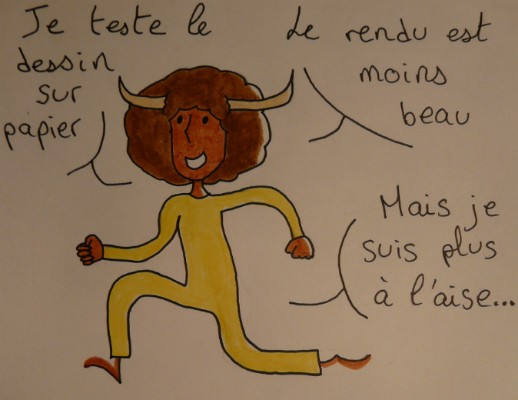 Je teste le
dessin
sur
papier
Le rendu est
moins
beau
Mais je
suis plus
à l'aise...